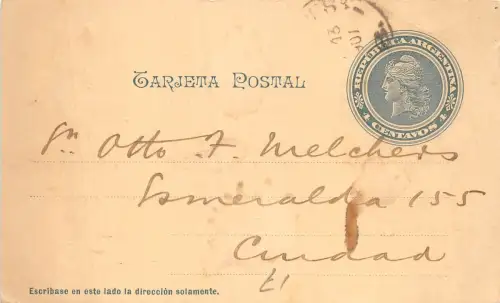 REPÚBLICA ARGENTINA
4 CENTAVOS 4
TARJETA POSTAL
Sr. Otto F. Melchers
Esmeralda 155
Ciudad
Escríbase en este lado la dirección solamente.